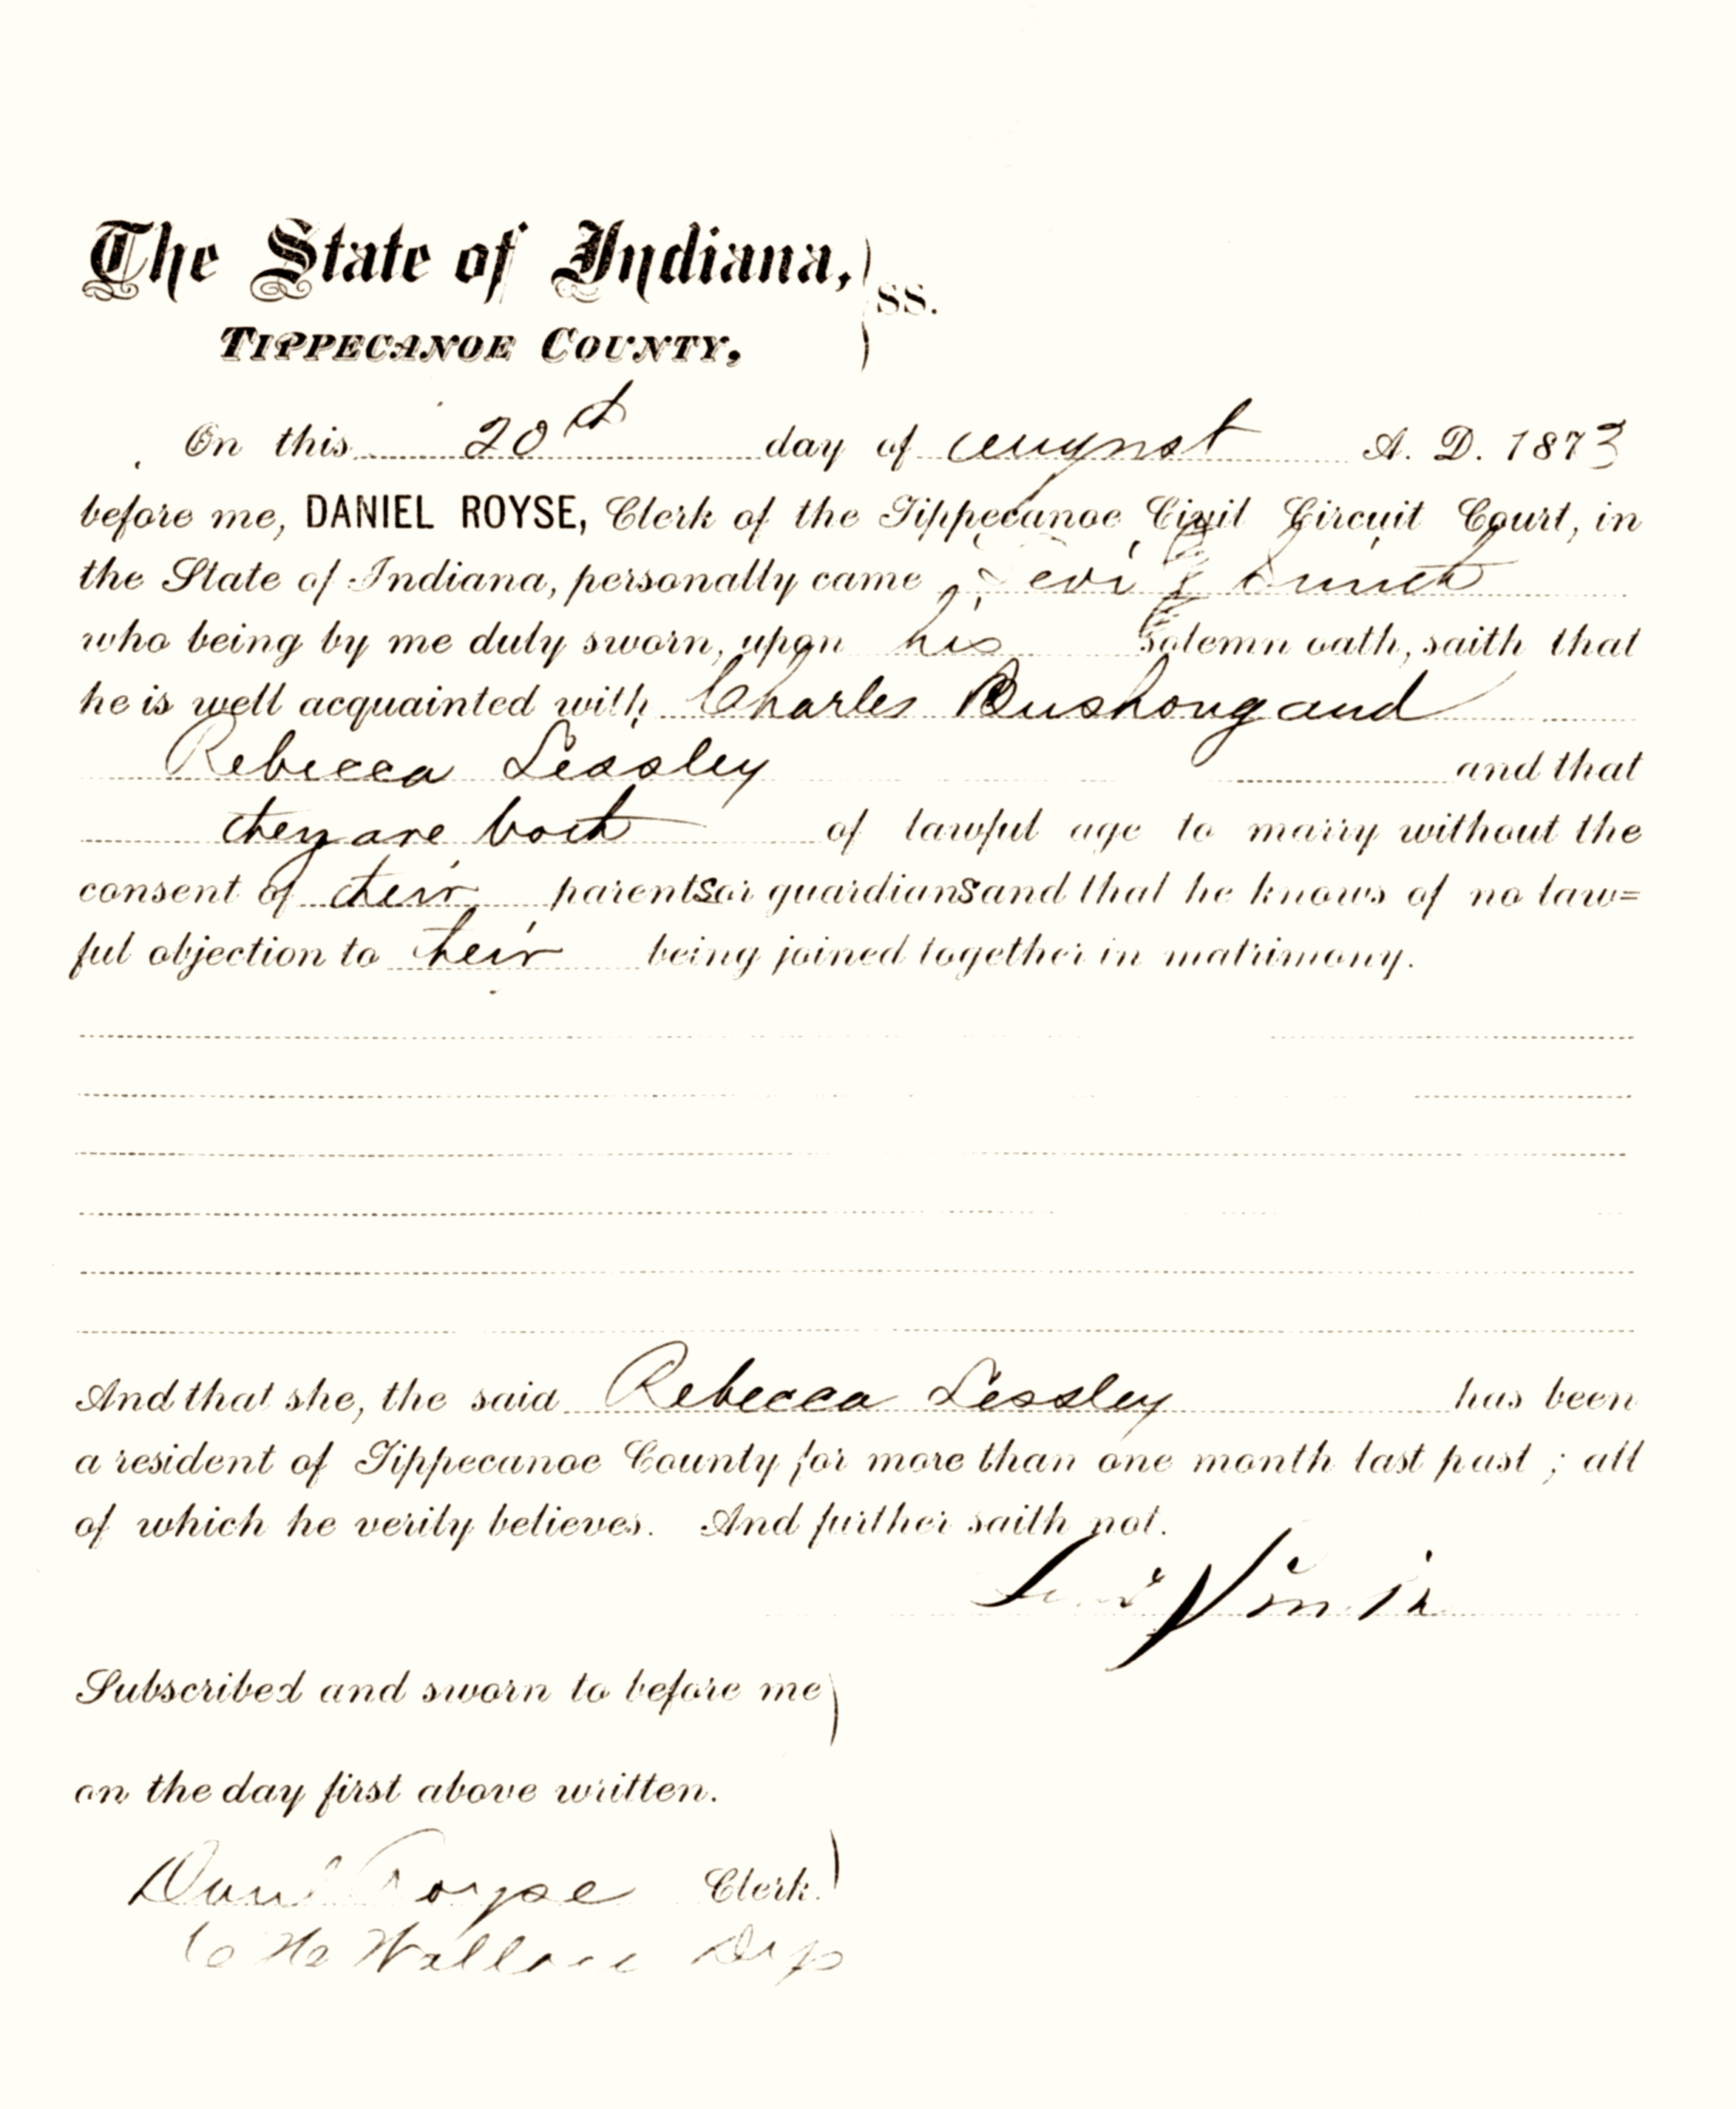 The State of Indiana,
SS.
TIPPECANOE COUNTY,
On this 20th day of August A. D. 1873
before me, DANIEL ROYSE, Clerk of the Tippecanoe Civil Circuit Court, in
the State of Indiana, personally came Levi Smith
who being by me duly sworn, upon his solemn oath, saith that
he is well acquainted with Charles Bushong and
Rebecca Lessley and that
they are both of lawful age to marry without the
consent of their parents or guardians and that he knows of no law=
ful objection to their being joined together in matrimony.
And that she, the said Rebecca Lessley has been
a resident of Tippecanoe County for more than one month last past ; all
of which he verily believes. And further saith not.
Levi Smith
Subscribed and sworn to before me
on the day first above written.
Danl Royse Clerk.
Wallace Dep